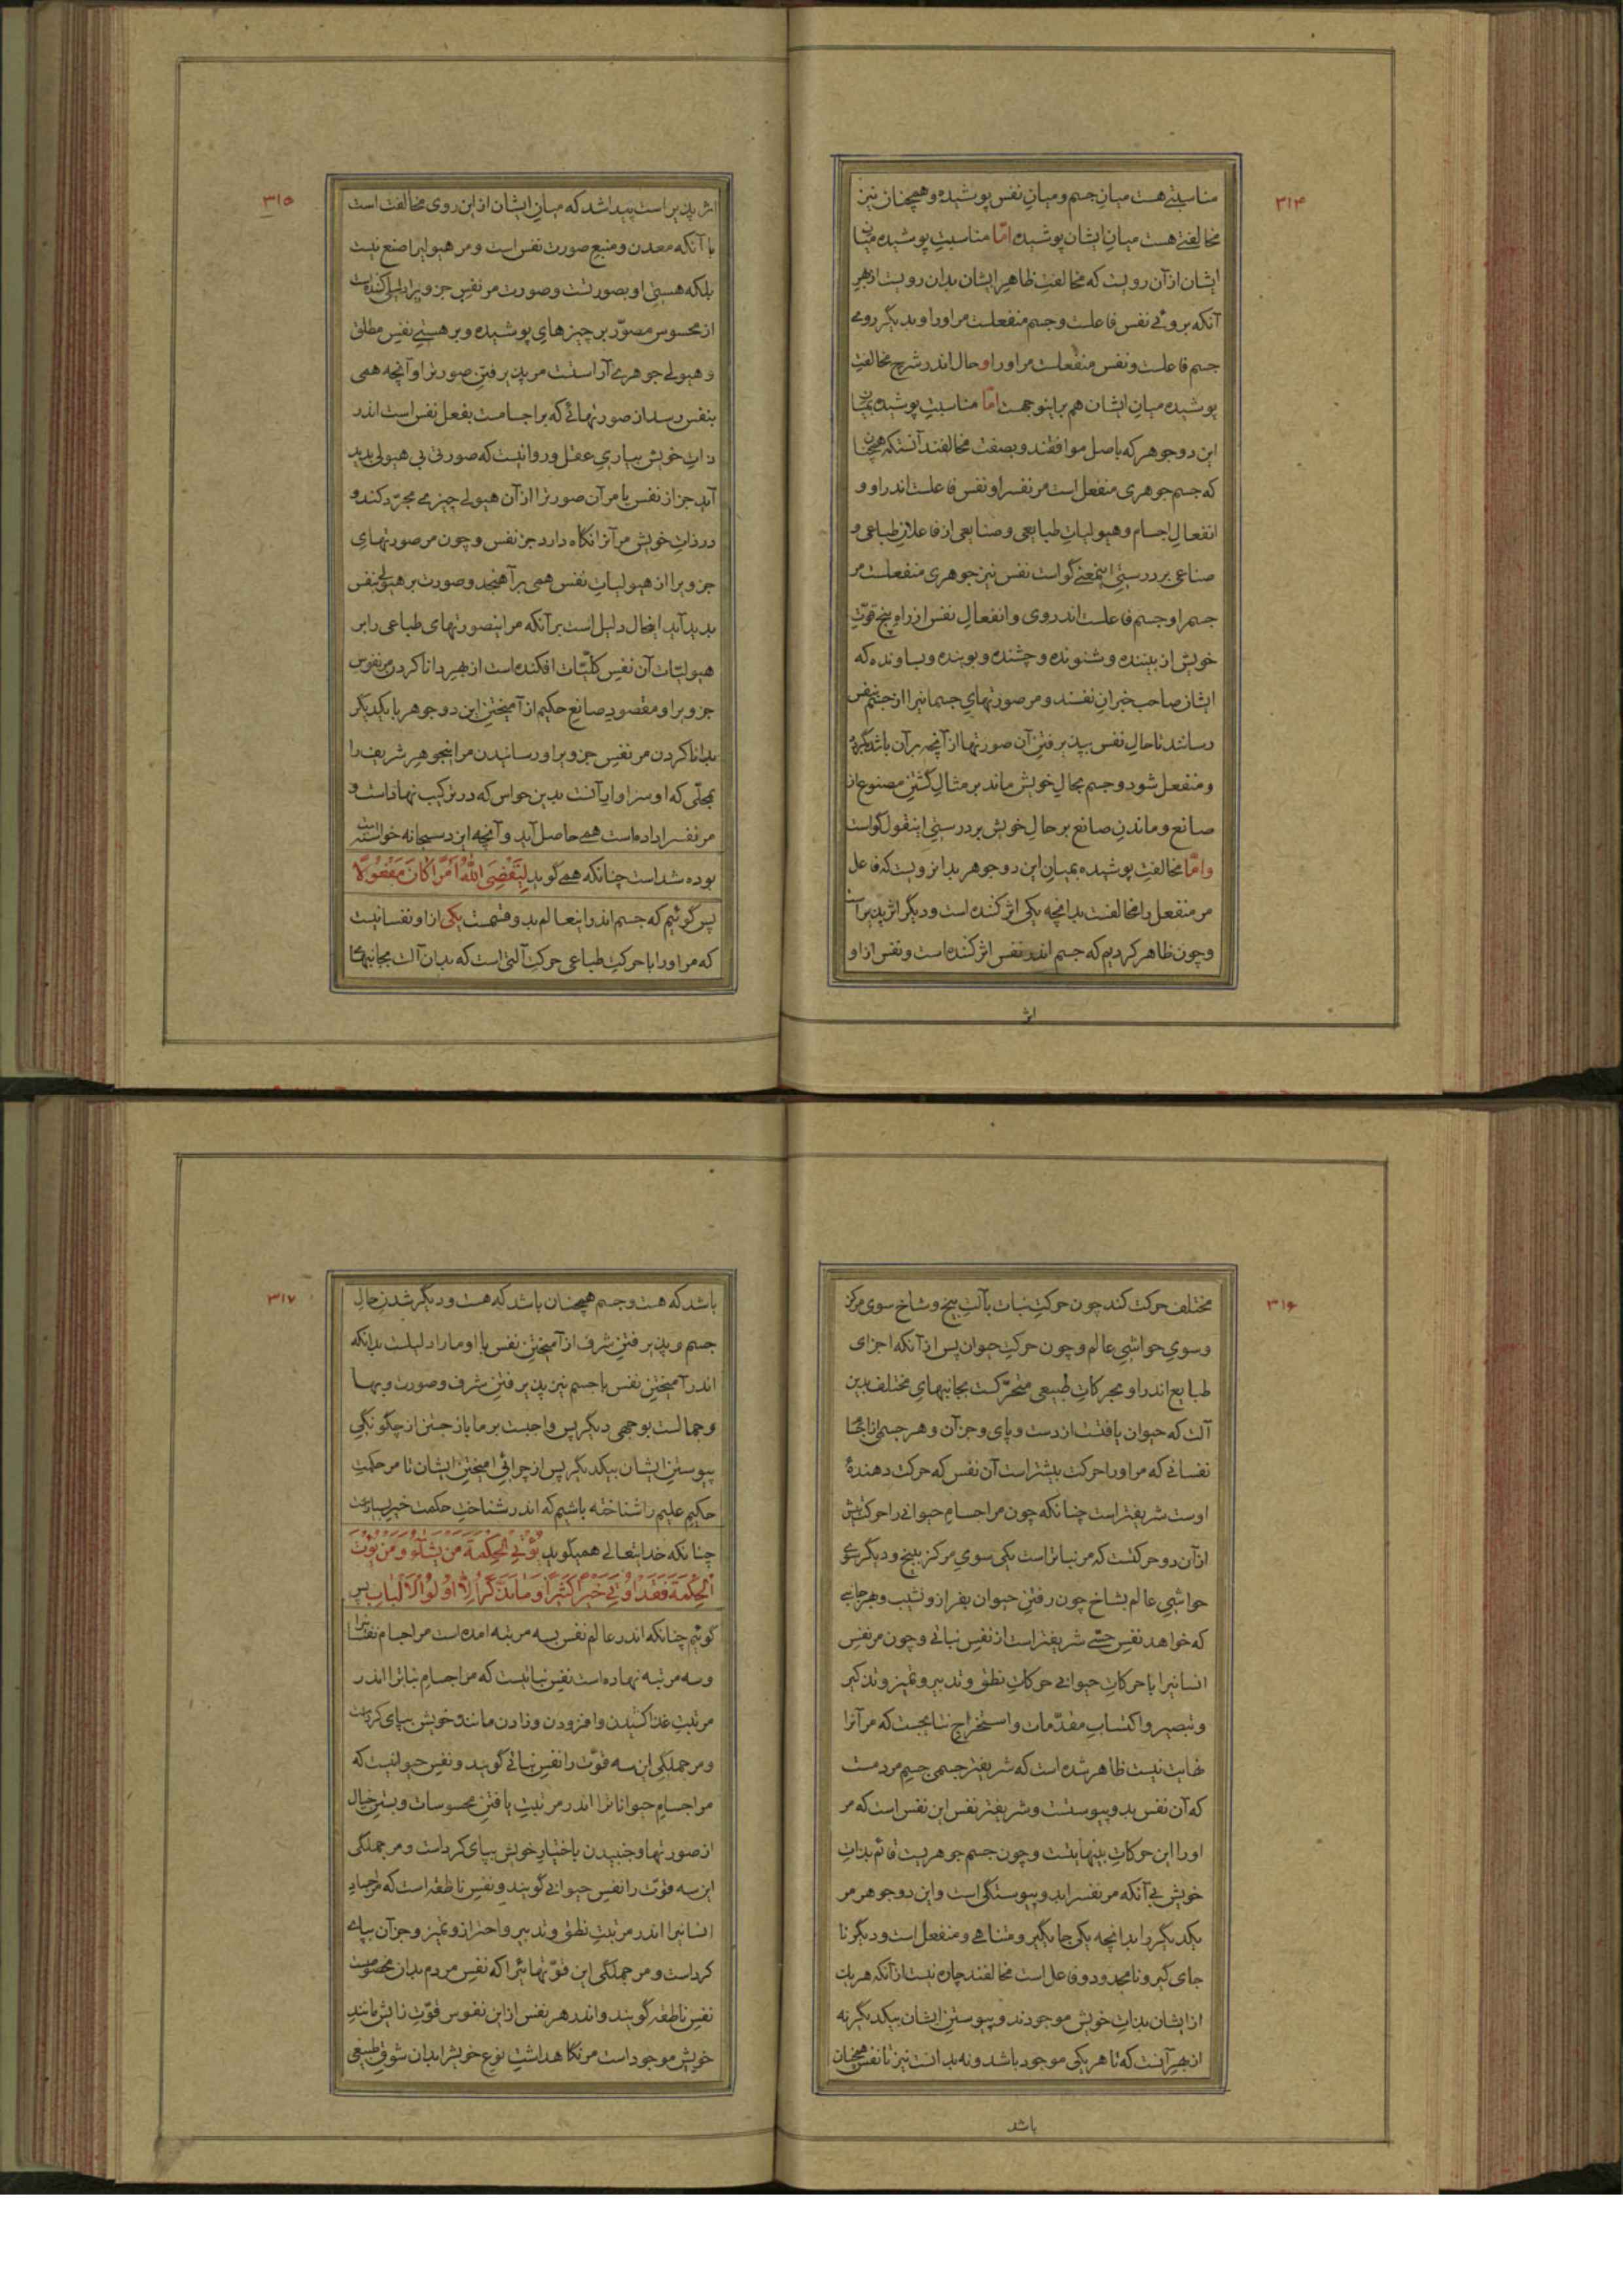 ۳۱۴
مناسبتی هست میان جسم و میان نفس پوشیده و همچنان نیز
مخالفتی هست میان ایشان پوشیده امّا مناسبت پوشیده میان
ایشان از آن رویست که مخالفت ظاهر ایشان بدان رویست از بهر
آنکه بروئی نفس فاعلست و جسم منفعلست مر اورا و بدیگر رومی
جسم فاعلست و نفس منفعلست مر اورا و حال اندر شرح مخالفت
پوشیده میان ایشان هم براینوجهست امّا مناسبت پوشیده میان
این دو جوهر که باصل موافقند و بصفت مخالفند آنستکه همچنان
که جسم جوهری منفعل است مر نفسرا و نفس فاعلست اندر او و
انفعال اجسام و هیولیات طبایعی و صنایعی از فاعلان طباعی و
صناعی بر درستی اینمعنی گواست نفس نیز جوهری منفعلست مر
جسم را و جسم فاعلست اندر وی و انفعال نفس از راه پنج قوّت
خویش از بیننده و شنونده و چشنده و بوینده و بساونده که
ایشان صاحب خبران نفسند و مر صورتهای جسمانیرا از جسم بنفس
رسانند تا حال نفس بپذیرفتن آن صورتها از آنچه بر آن باشد بگردد
و منفعل شود و جسم بحال خویش ماند بر مثال گشتن مصنوع از
صانع و ماندن صانع بر حال خویش بر درستی اینقول گواست
وامّا مخالفت پوشیده بمیان این دو جوهر بدانرویست که فاعل
مر منفعل را مخالفست بدانچه یکی اثر کننده است و دیگر اثر پذیر است
و چون ظاهر کردیم که جسم اندر نفس اثر کننده است و نفس از او
اثر
۳۱۵
اثر پذیر است پیدا شد که میان ایشان از این روی مخالفت است
با آنکه معدن و منبع صورت نفس است و مر هیولیرا صنع نیست
بلکه هستی او بصورتست و صورت مر نفس جزویرا دلیلی کننده است
از محسوس مصوّر بر چیزهای پوشیده و بر هستی نفس مطلق
و هیولی جوهری آراستست مر پذیرفتن صورترا و آنچه همی
بنفس رسد از صورتهائی که بر اجسامست بفعل نفس است اندر
ذات خویش بیاری عقل و روانیست که صورتی بی هیولی پدید
آید جز از نفس یا مر آن صورترا از آن هیولی چیزی مجرّد کند و
در ذات خویش مر آنرا نگاه دارد جز نفس و چون مر صورتهای
جزویرا از هیولیات نفس همی برآهنجد و صورت بر هیولی بنفس
پدید آید اینحال دلیل است بر آنکه مر اینصورتهای طباعی را بر
هیولیّات آن نفس کلّیّات افکنده است از بهر دانا کردن مر نفوس
جزویرا و مقصود صانع حکیم از آمیختن این دو جوهر با یکدیگر
بدانا کردن مر نفس جزویرا و رسانیدن مر اینجوهر شریف را
بمحلّی که او سزاوار آنست بدین حواس که در ترکیب نهاد است و
مر نفسرا داده است همی حاصل آید و آنچه ایزد سبحانه خواسته است
بوده شد است چنانکه همی گوید لِیَقْضِیَ اللّٰهُ اَمْرًا کَانَ مَفْعُولًا
پس گوئیم که جسم اندر اینعالم بدو قسمت یکی از او نفسانیست
که مر اورا با حرکت طباعی حرکت آلتی است که بدان آلت بجانبهای
۳۱۶
مختلف حرکت کند چون حرکت نبات بآلت بیخ و شاخ سوی مرکز
و سوی حواشی عالم و چون حرکت حیوان پس از آنکه اجزای
طبایع اندر او بحرکات طبیعی متحرّکست بجانبهای مختلف بدین
آلت که حیوان یافتست از دست و پای و جز آن و هر جسمی از اجسام
نفسانی که مر اورا حرکت بیشتر است آن نفس که حرکت دهندهٔ
اوست شریفتر است چنانکه چون مر اجسام حیوانی را حرکت بیش
از آن دو حرکتست که مر نباترا است یکی سوی مرکز ببیخ و دیگر سوی
حواشی عالم بشاخ چون رفتن حیوان بفراز و نشیب و بهر جانبی
که خواهد نفس حسّی شریفتر است از نفس نباتی و چون مر نفس
انسانیرا با حرکات حیوانی حرکات نطق و تدبیر و تمیز و تذکیر
و تبصیر و اکتساب مقدّمات و استخراج نتایجست که مر آنرا
نهایت نیست ظاهر شده است که شریفتر جسمی جسم مردمست
که آن نفس بدو پیوستست و شریفتر نفس این نفس است که مر
اورا این حرکات بینهایتست و چون جسم جوهریست قائم بذات
خویش بی آنکه مر نفسرا بدو پیوستگی است و این دو جوهر مر
یکدیگر را بدانچه یکی جایگیر و متناهی و منفعل است و دیگر نا
جای گیر و نامحدود و فاعل است مخالفند چاره نیست از آنکه هر یک
از ایشان بذات خویش موجودند و پیوستن ایشان بیکدیگر نه
از بهر آنست که تا هر یکی موجود باشد و نه بدانست نیز تا نفس همچنان
باشد
۳۱۷
باشد که هست و جسم همچنان باشد که هست و دیگر شدن حال
جسم و پذیرفتن شرف از آمیختن نفس با او مارا دلیلست بدانکه
اندر آمیختن نفس با جسم نیز پذیرفتن شرف و صورت و بها
و جمالست بوجهی دیگر پس واجبست بر ما باز جستن از چگونگی
پیوستن ایشان بیکدیگر پس از چرائی امیختن ایشان تا مر حکمت
حکیم علیم را شناخته باشیم که اندر شناخت حکمت خیر بسیار است
چنانکه خدایتعالی همیگوید یُؤْتِی الْحِکْمَةَ مَنْ یَشَآءُ وَ مَنْ یُؤْتَ
الْحِکْمَةَ فَقَدْ اُوتِیَ خَیْرًا کَثِیرًا وَ مَا یَذَّکَّرُ اِلَّا اُولُوا الْاَلْبَابِ پس
گوئیم چنانکه اندر عالم نفس بسه مرتبه امده است مر اجسام نفسانیرا
و سه مرتبه نهاده است نفس نباتیست که مر اجسام نباترا اندر
مرتبت غذا کشیدن و افزودن و زادن مانند خویش بپای کرد است
و مر جملگی این سه قوّت را نفس نباتی گویند و نفس حیوانیست که
مر اجسام حیواناترا اندر مرتبت یافتن محسوسات و بستن خیال
از صورتها و جنبیدن باختیار خویش بپای کرد است و مر جملگی
این سه قوّت را نفس حیوانی گویند و نفس ناطقه است که مر اجساد
انسانیرا اندر مرتبت نطق و تدبیر و احتراز و تمیز و جز آن بپای
کرد است و مر جملگی این قوّتهائیرا که نفس مردم بدان مخصوصست
نفس ناطقه گویند و اندر هر نفس از این نفوس قوّت زایش مانند
خویش موجود است مر نگاهداشت نوع خویشرا بدان شوق طبیعی